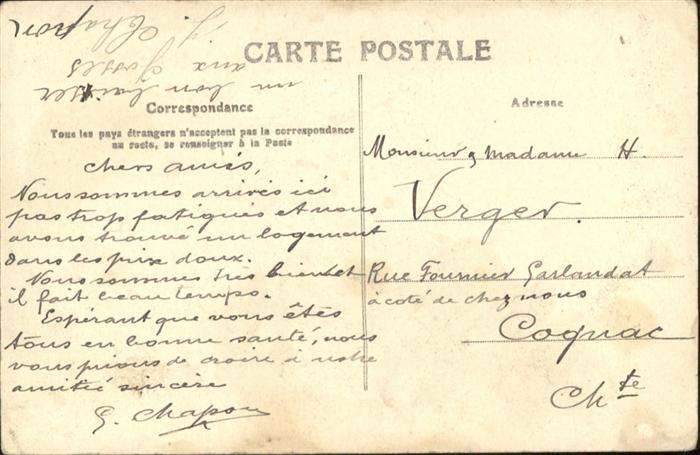 CARTE POSTALE
Correspondance
Tous les pays étrangers n'acceptent pas la correspondance
au recto, se renseigner à la Poste
chers amis,
Nous sommes arrivés ici
pas trop fatigués et nous
avons trouvé un logement
dans les prix doux.
Nous sommes très bien et
il fait beau temps.
Espérant que vous êtes
tous en bonne santé, nous
vous prions de croire à notre
amitié sincère
G. Chapon
un bon baiser
aux gosses
G. Chapon
Adresse
Monsieur & madame H.
Verger.
Rue Fournier Garlandat
à coté de chez nous
Cognac
Chte